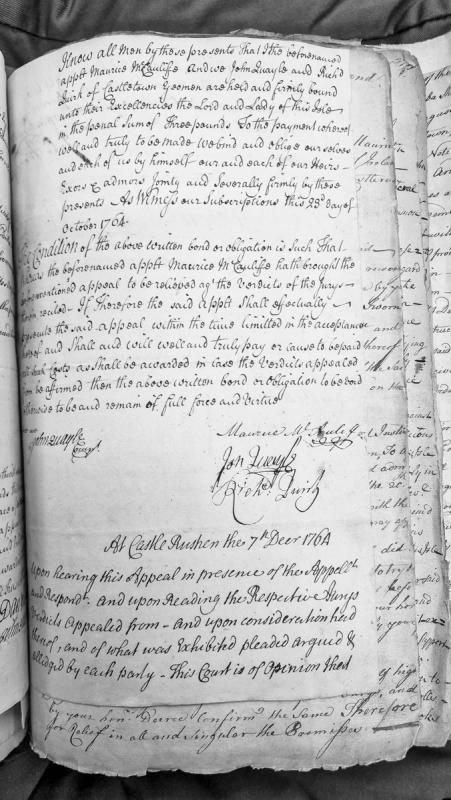 Know all Men by these presents That I the beforenamed
appt Maurice McCauliffe And we John Quayle and Richd
Quirk of Castletown Yeomen are held and firmly bound
unto their Excellencies the Lord and Lady of this Isle
in the penal Sum of Three pounds To the payment whereof
well and truly to be made we bind and oblige our selves
and each of us by himself our and each of our Heirs
Exors & admors Jointly and Severally firmly by these
presents As Witness our Subscriptions this 23d day of
October 1764.
The Condition of the above written bond or obligation is Such That
whereas the beforenamed appt Maurice McCauliffe hath brought the
beforementioned appeal to be relieved agt the Verdicts of the Jurys
therein recited - If Therefore the said appt Shall effectually
prosecute the said appeal within the time limitted in the acceptance
thereof and Shall and will well and truly pay or cause to be paid
all such Costs as Shall be awarded in case the Verdicts appealed
from be affirmed then the above written bond or obligation to be void
otherwise to be and remain of full force and Virtue
John Quayle
Maurice Mc Aulif
Jon Quayle
Richd Quirk
At Castle Rushen the 7th Decr 1764
Upon hearing this Appeal in presence of the Appellt
and Respondt. and upon Reading the Respective Jurys
Verdicts Appealed from - and upon consideration had
thereof, and of what was Exhibited pleaded argued &
alledged by each party - This Court is of Opinion that
by your honrs Decree Confirm the Same Therefore
for Relief in all and Singular the Premisses